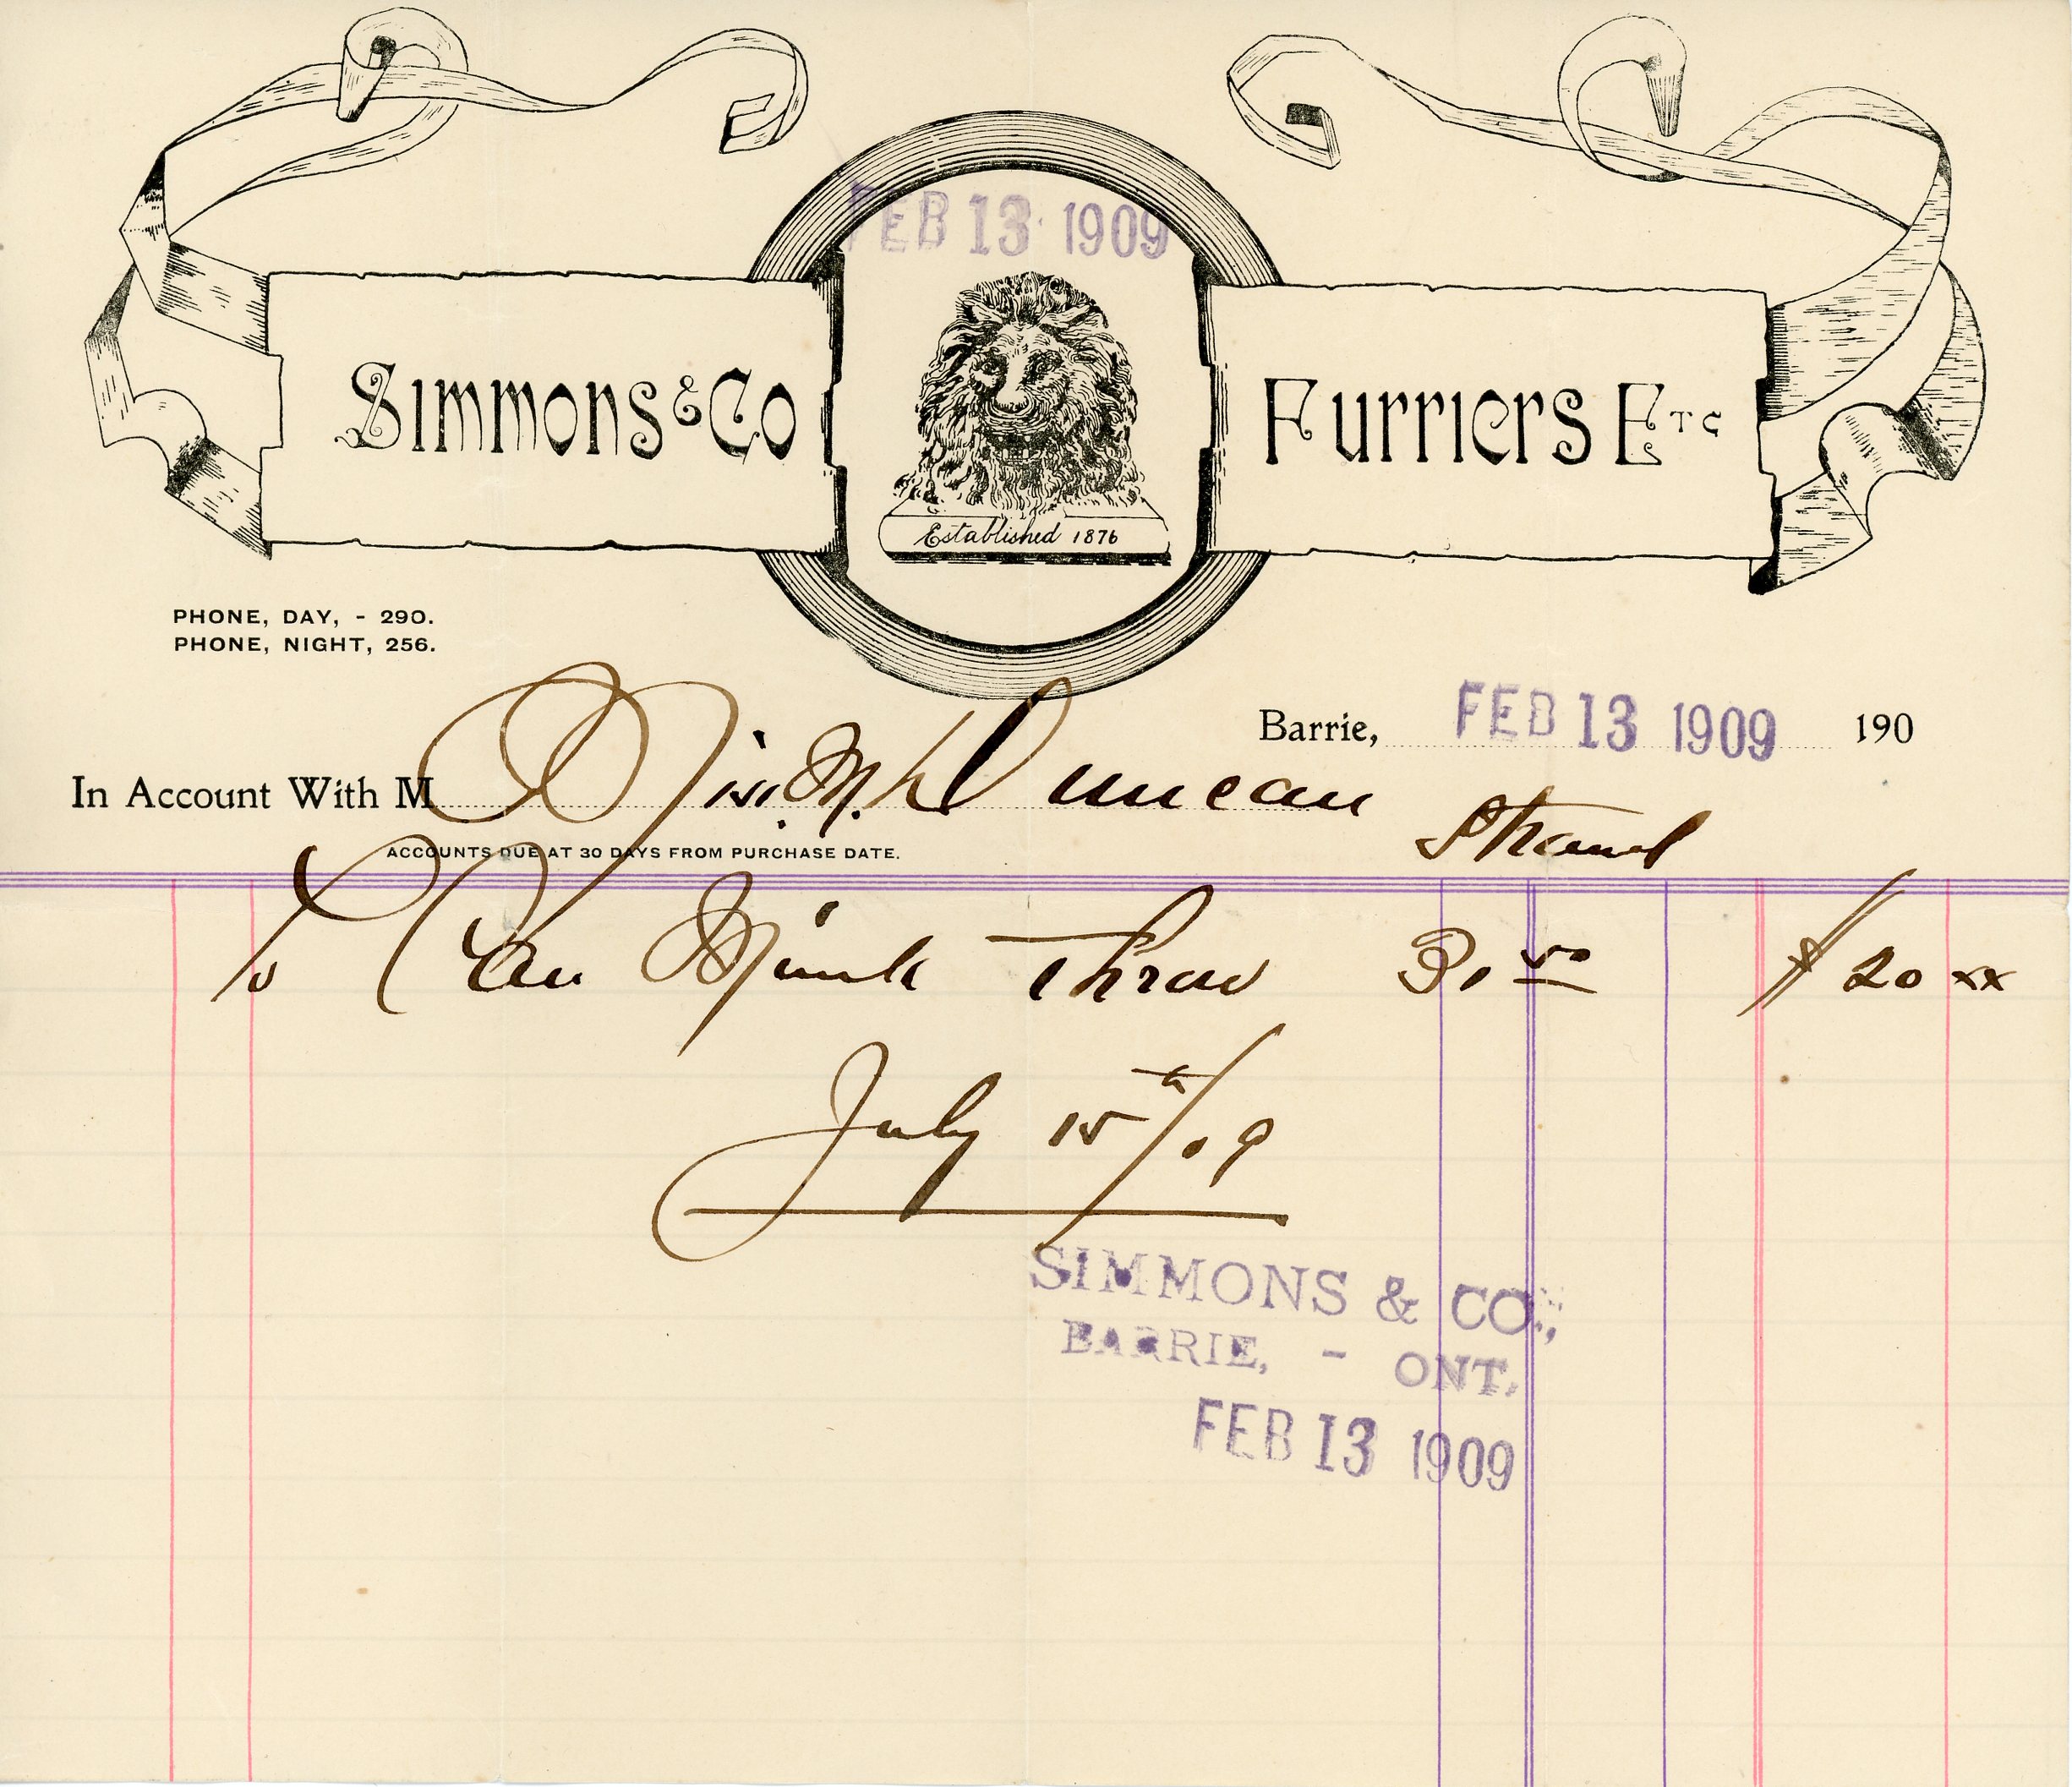 FEB 13 1909
Simmons & Co Furriers Etc
Established 1876
PHONE, DAY, - 290.
PHONE, NIGHT, 256.
Barrie, FEB 13 1909 190
In Account With M Miss M. L Duncan
Stroud
ACCOUNTS DUE AT 30 DAYS FROM PURCHASE DATE.
To Can Mink Throw $20 xx
July 15th/09
SIMMONS & CO.,
BARRIE, - ONT.
FEB 13 1909